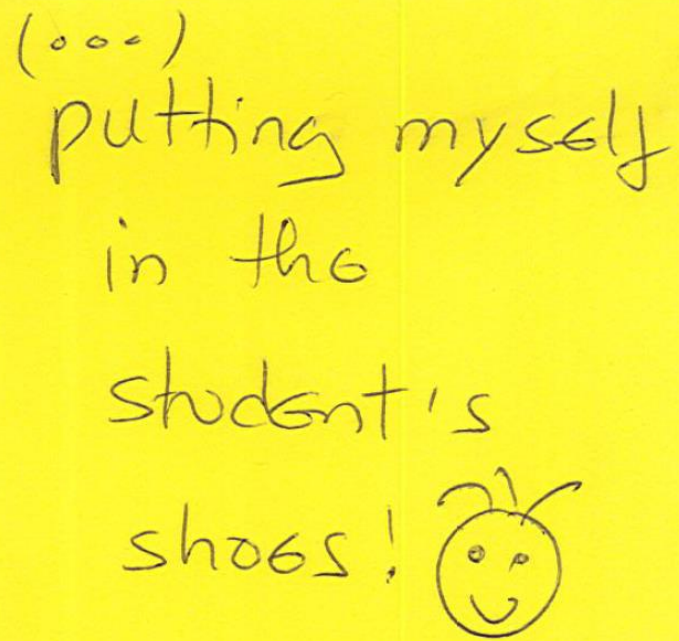 (...)
putting myself
in the
student's
shoes!